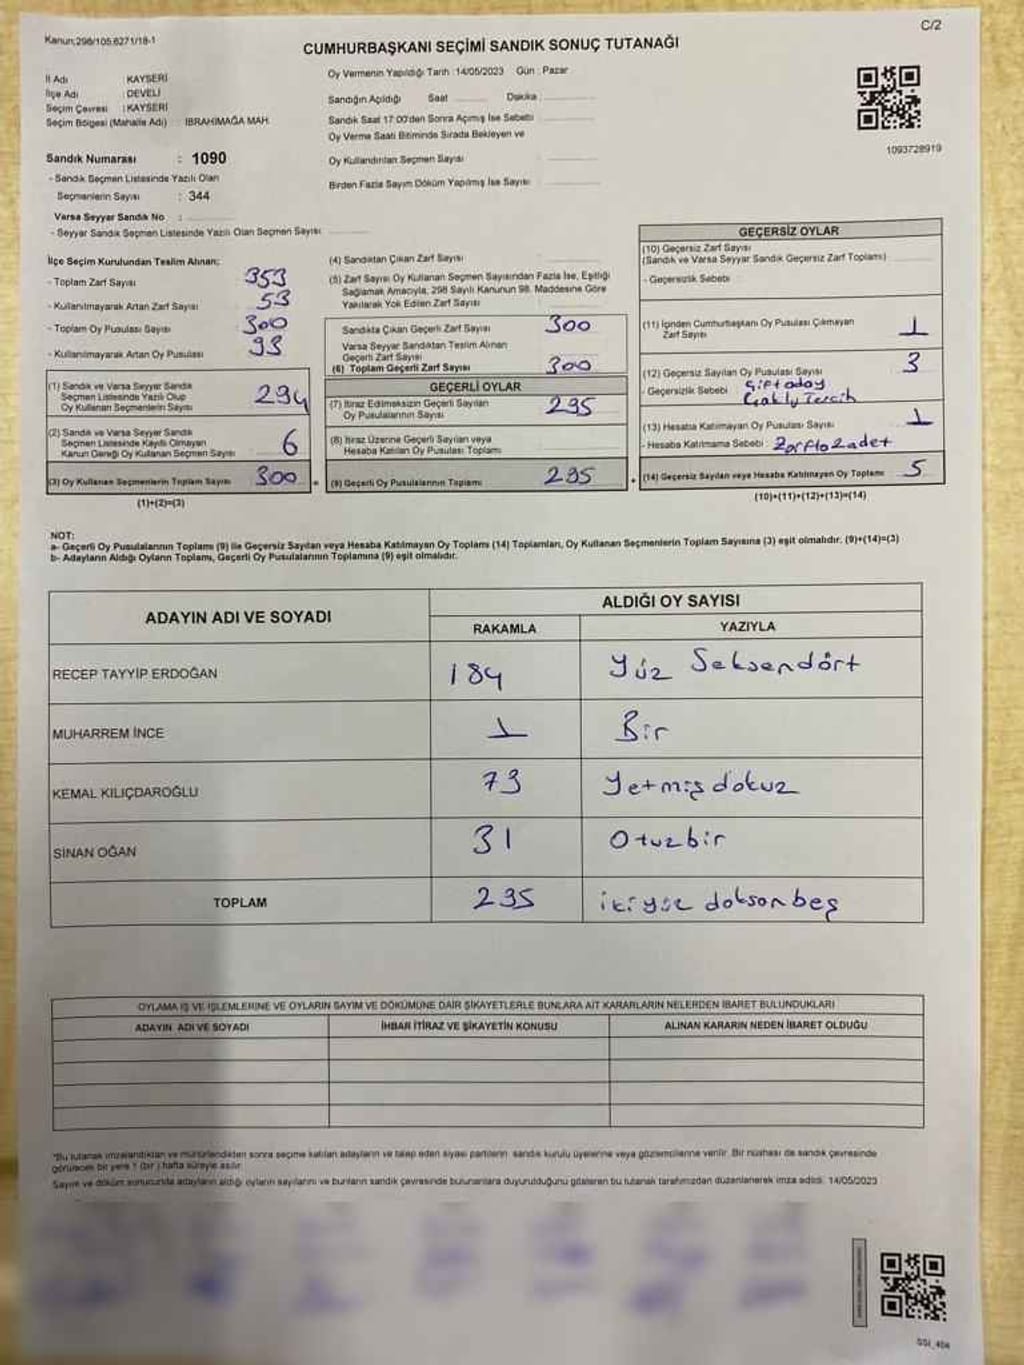 C/2
Kanun:298/105,6271/18-1
CUMHURBAŞKANI SEÇİMİ SANDIK SONUÇ TUTANAĞI
İl Adı : KAYSERİ
İlçe Adı : DEVELİ
Seçim Çevresi : KAYSERİ
Seçim Bölgesi (Mahalle Adı) : İBRAHİMAĞA MAH.
Sandık Numarası : 1090
- Sandık Seçmen Listesinde Yazılı Olan
Seçmenlerin Sayısı : 344
Varsa Seyyar Sandık No :
- Seyyar Sandık Seçmen Listesinde Yazılı Olan Seçmen Sayısı
Oy Vermenin Yapıldığı Tarih :14/05/2023 Gün : Pazar
Sandığın Açıldığı Saat Dakika :
Sandık Saat 17:00'den Sonra Açılmış İse Sebebi :
Oy Verme Saati Bitiminde Sırada Bekleyen ve
Oy Kullandırılan Seçmen Sayısı :
Birden Fazla Sayım Döküm Yapılmış İse Sayısı :
1093728919
İlçe Seçim Kurulundan Teslim Alınan;
- Toplam Zarf Sayısı 353
- Kullanılmayarak Artan Zarf Sayısı 53
- Toplam Oy Pusulası Sayısı 300
- Kullanılmayarak Artan Oy Pusulası 93
(1) Sandık ve Varsa Seyyar Sandık
Seçmen Listesinde Yazılı Olup
Oy Kullanan Seçmenlerin Sayısı 294
(2) Sandık ve Varsa Seyyar Sandık
Seçmen Listesinde Kayıtlı Olmayan
Kanun Gereği Oy Kullanan Seçmen Sayısı 6
(3) Oy Kullanan Seçmenlerin Toplam Sayısı 300
(1)+(2)=(3)
(4) Sandıktan Çıkan Zarf Sayısı
(5) Zarf Sayısı Oy Kullanan Seçmen Sayısından Fazla İse, Eşitliği
Sağlamak Amacıyla, 298 Sayılı Kanunun 98. Maddesine Göre
Yakılarak Yok Edilen Zarf Sayısı
Sandıkta Çıkan Geçerli Zarf Sayısı 300
Varsa Seyyar Sandıktan Teslim Alınan
Geçerli Zarf Sayısı
(6) Toplam Geçerli Zarf Sayısı 300
GEÇERLİ OYLAR
(7) İtiraz Edilmeksizin Geçerli Sayılan
Oy Pusulalarının Sayısı 295
(8) İtiraz Üzerine Geçerli Sayılan veya
Hesaba Katılan Oy Pusulası Toplamı
(9) Geçerli Oy Pusulalarının Toplamı 295
GEÇERSİZ OYLAR
(10) Geçersiz Zarf Sayısı
(Sandık ve Varsa Seyyar Sandık Geçersiz Zarf Toplamı)
- Geçersizlik Sebebi :
(11) İçinden Cumhurbaşkanı Oy Pusulası Çıkmayan
Zarf Sayısı 1
(12) Geçersiz Sayılan Oy Pusulası Sayısı 3
- Geçersizlik Sebebi : Çift aday
Çoklu Tercih
(13) Hesaba Katılmayan Oy Pusulası Sayısı 1
- Hesaba Katılmama Sebebi : Zarfta 2 adet
(14) Geçersiz Sayılan veya Hesaba Katılmayan Oy Toplamı 5
(10)+(11)+(12)+(13)=(14)
NOT:
a- Geçerli Oy Pusulalarının Toplamı (9) ile Geçersiz Sayılan veya Hesaba Katılmayan Oy Toplamı (14) Toplamları, Oy Kullanan Seçmenlerin Toplam Sayısına (3) eşit olmalıdır. (9)+(14)=(3)
b- Adayların Aldığı Oyların Toplamı, Geçerli Oy Pusulalarının Toplamına (9) eşit olmalıdır.
ADAYIN ADI VE SOYADI
ALDIĞI OY SAYISI
RAKAMLA YAZIYLA
RECEP TAYYİP ERDOĞAN 184 Yüz Seksendört
MUHARREM İNCE 1 Bir
KEMAL KILIÇDAROĞLU 79 Yetmiş dokuz
SİNAN OĞAN 31 Otuzbir
TOPLAM 295 ikiyüz doksanbeş
OYLAMA İŞ VE İŞLEMLERİNE VE OYLARIN SAYIM VE DÖKÜMÜNE DAİR ŞİKAYETLERLE BUNLARA AİT KARARLARIN NELERDEN İBARET BULUNDUKLARI
ADAYIN ADI VE SOYADI İHBAR İTİRAZ VE ŞİKAYETİN KONUSU ALINAN KARARIN NEDEN İBARET OLDUĞU
*Bu tutanak imzalandıktan ve mühürlendikten sonra seçime katılan adayların ve talep eden siyasi partilerin sandık kurulu üyelerine veya gözlemcilerine verilir. Bir nüshası da sandık çevresinde
görülecek bir yere 1 (bir) hafta süreyle asılır.
Sayım ve döküm sonucunda adayların aldığı oyların sayılarını ve bunların sandık çevresinde bulunanlara duyurulduğunu gösteren bu tutanak tarafımızdan düzenlenerek imza edildi. 14/05/2023